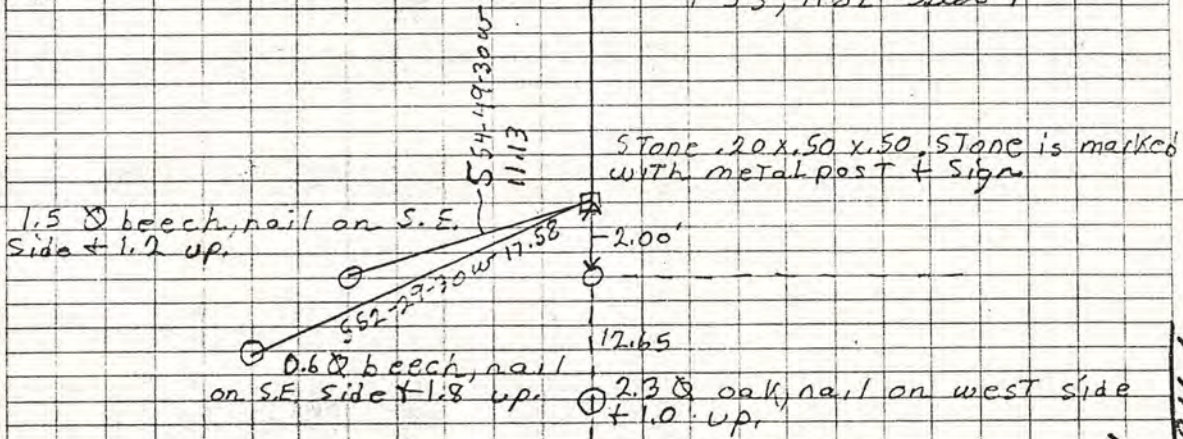 S54-49-30W
11.13
STone .20 x .50 x .50. STone is marked
wiTh meTal posT + Sign
1.5 Ø beech, nail on S.E.
Side + 1.2 up.
2.00'
S52-27-30W 17.58
12.65
0.6 Ø beech, nail
on S.E. Side + 1.8 up.
2.3 Ø oak, nail on west Side
+ 1.0 up.